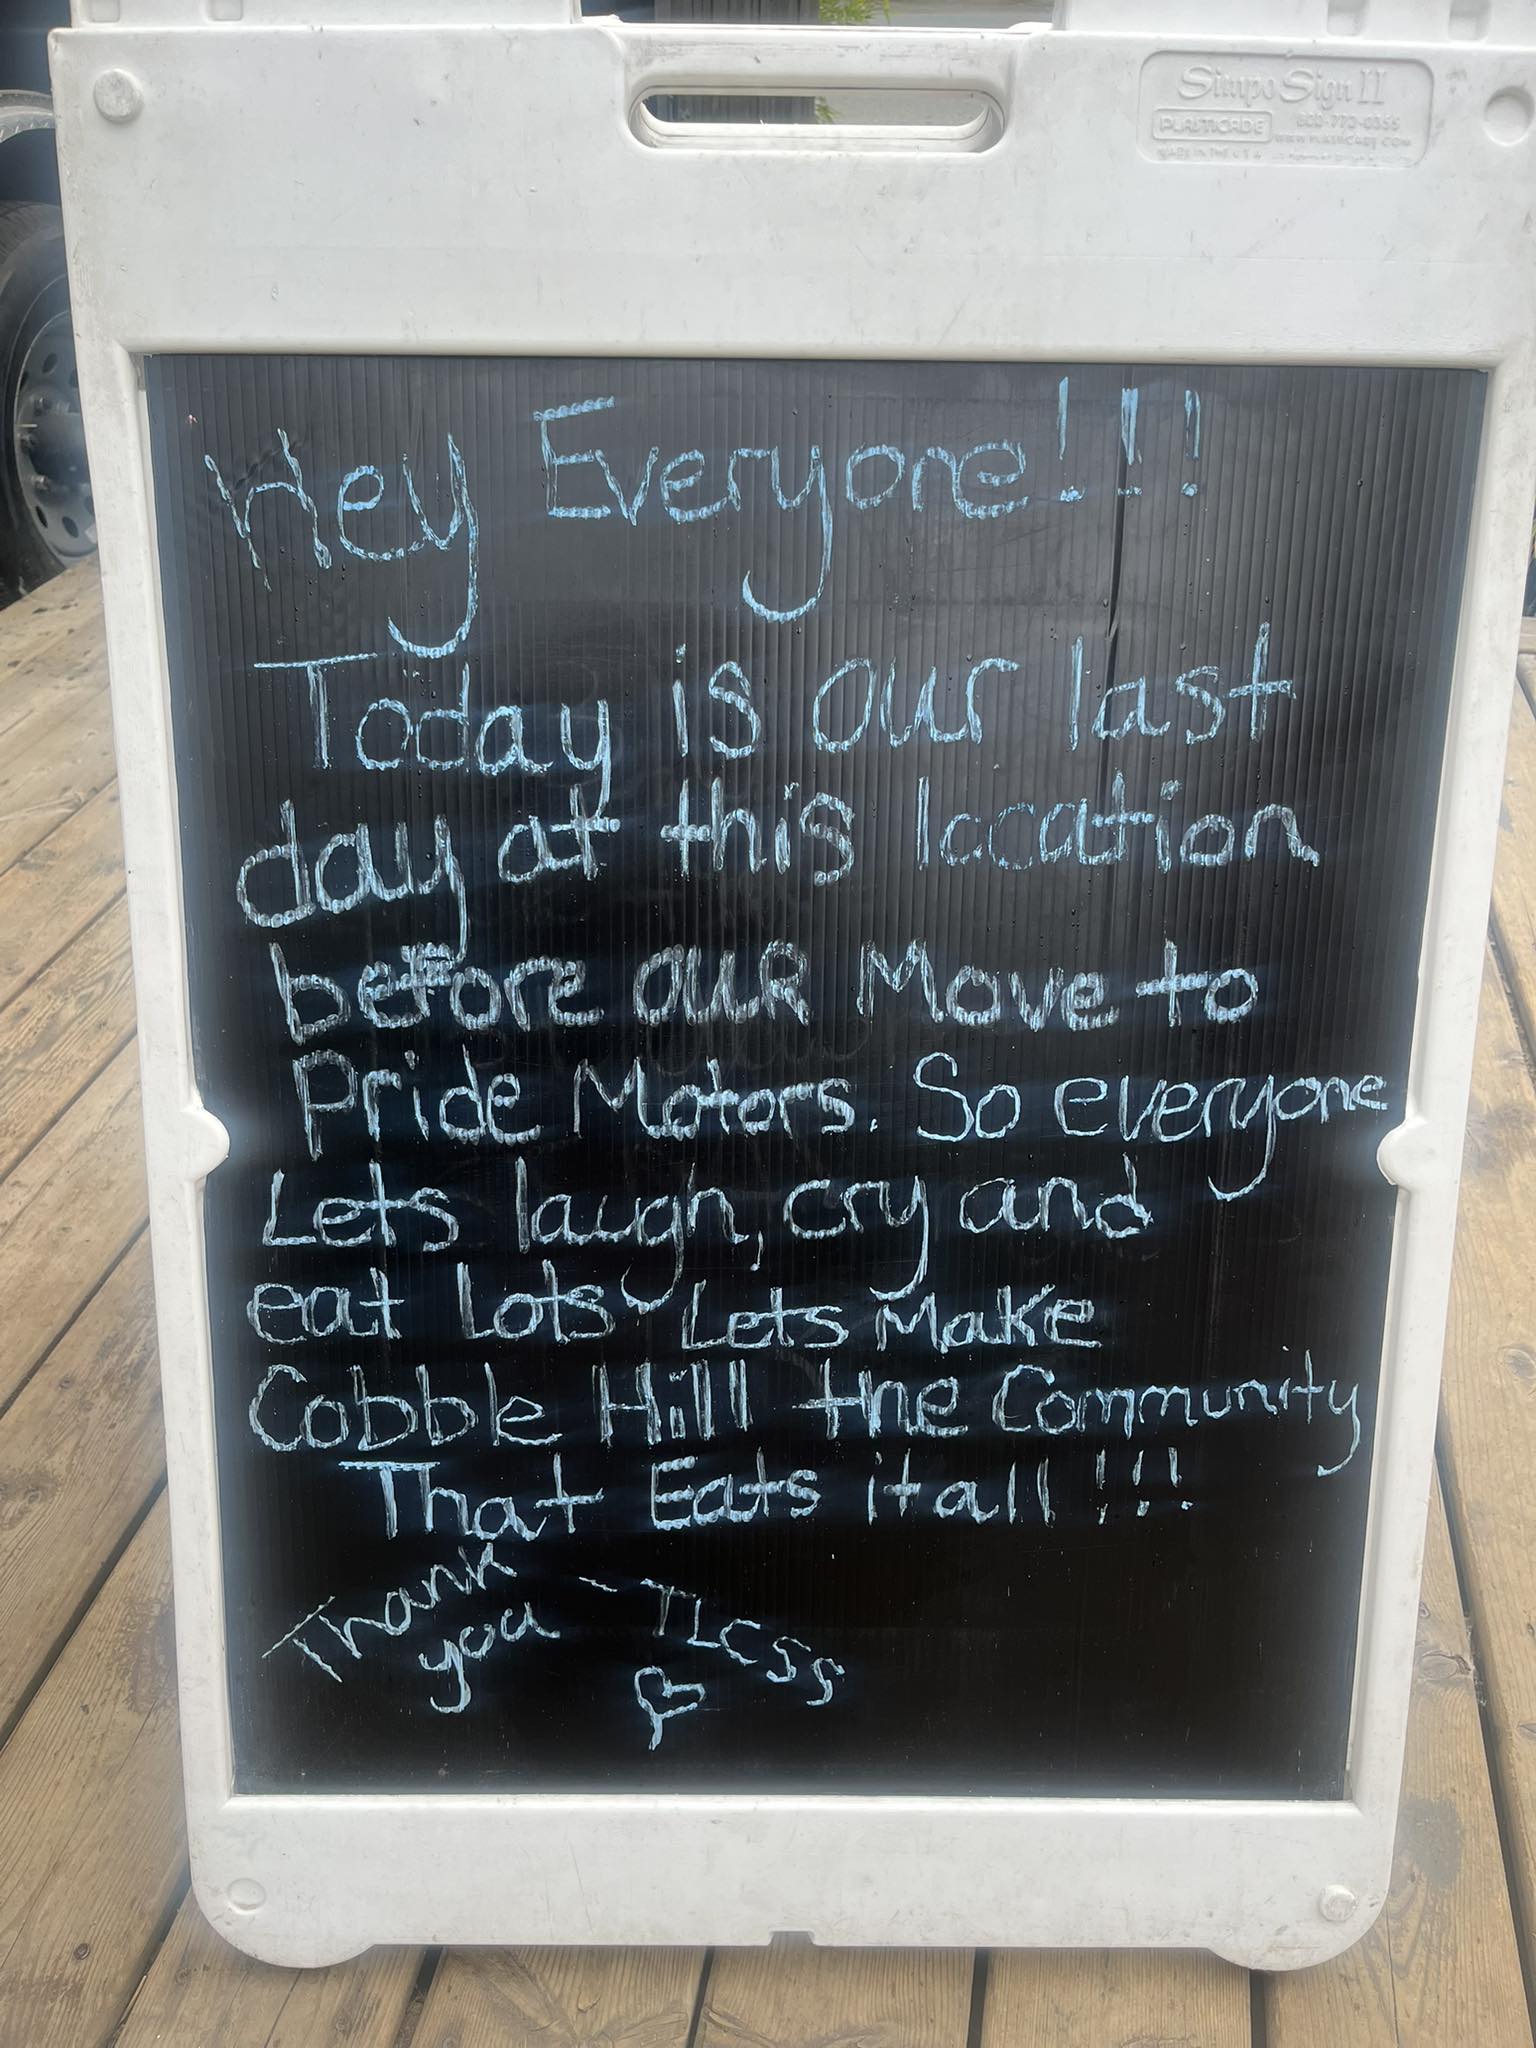 Simpo Sign II
PLASTICADE 800-772-0355
WWW.PLASTICADE.COM
MADE IN THE U.S.A.
Hey Everyone!!!
Today is our last
day at this location
before our Move to
Pride Motors. So everyone
Lets laugh, cry and
eat lots Lets Make
Cobble Hill the Community
That Eats it all!!!
Thank
you
- TLCSS